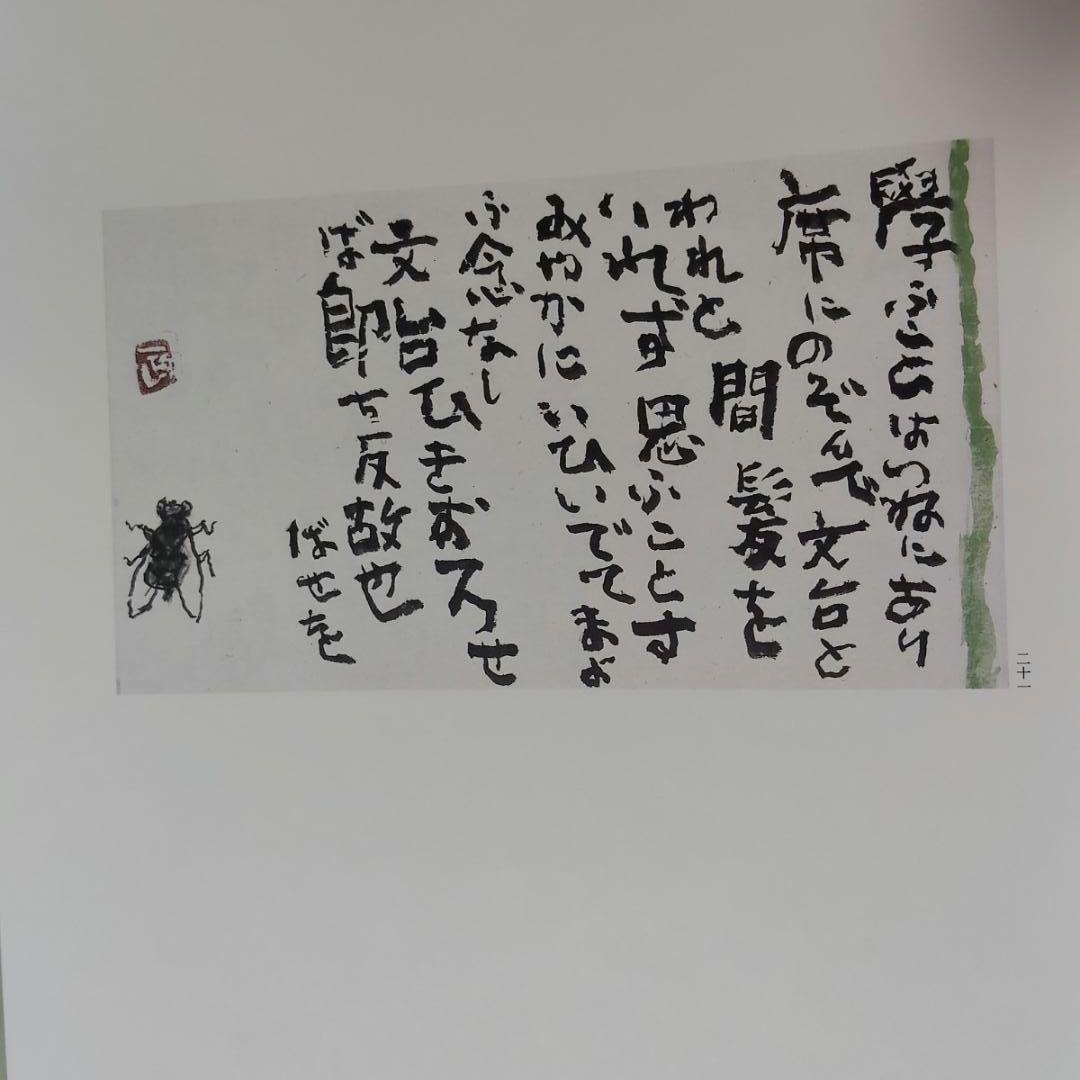 二十一
學ぶことはつねにあり
席にのぞんで文台と
われと間髪を
いれず思ふことす
みやかにいひいでてまよ
ふ念なし
文台ひきおろせ
ば即ち反故也
ばせを